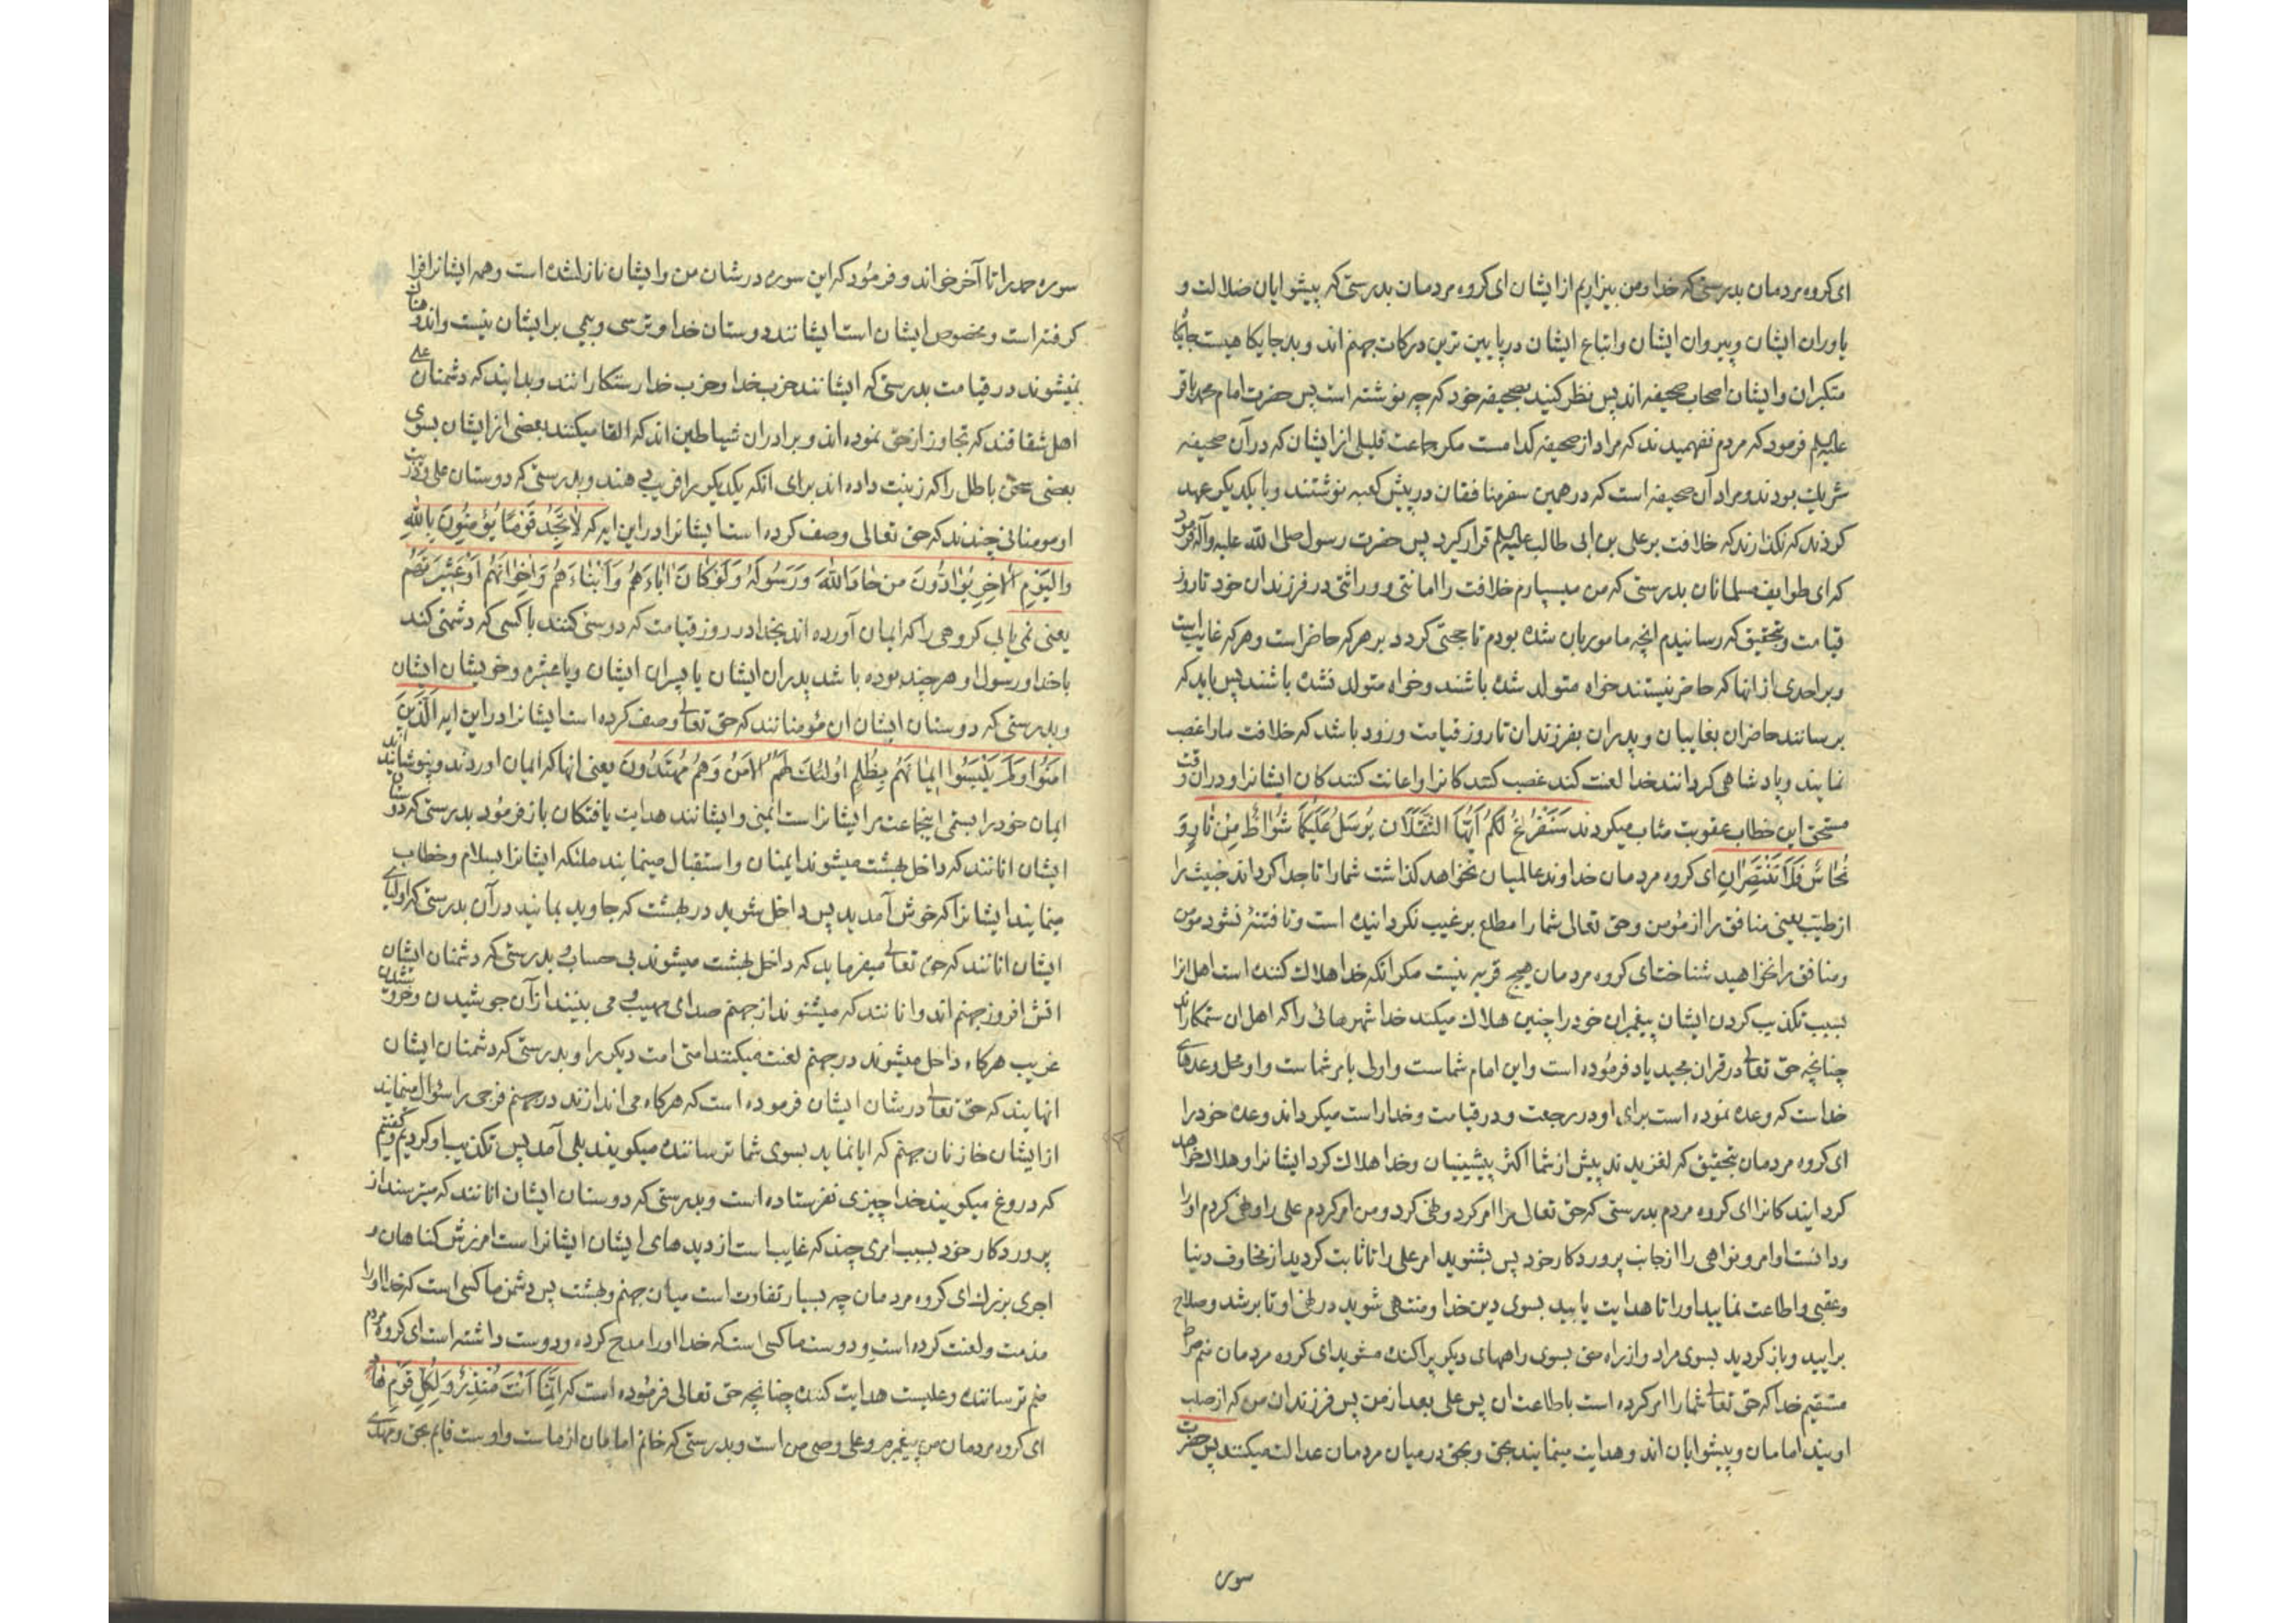 ای کروه مردمان بدرستی که خدا ومن بیزاریم از ایشان ای کروه مردمان بدرستی که پیشوایان ضلالت و
یاوران ایشان وپیروان ایشان واتباع ایشان در پایین ترین درکات جهنم اند وبد جایکا هیست جایکا
متکبران وایشان اصحاب صحیفه اند پس نظر کنید بصحیفه خود که چه نوشته است پس حضرت امام محمد باقر
علیه‌السلم فرمود که مردم نفهمیدند که مراد از صحیفه کدامست مکر جماعت قلیلی از ایشان که در آن صحیفه
شریک بودند ومراد آن صحیفه است که در همین سفر منافقان در پیش کعبه نوشتند وبا یکدیکر عهد
کردند که نکذارند که خلافت بر علی بن ابی طالب علیه‌السلم قرار کیرد پس حضرت رسول صلی الله علیه وآله فرمود
که ای طوایف مسلمانان بدرستی که من میسپارم خلافت را امانتی ووراثتی در فرزندان خود تا روز
قیامت وتحقیق که رسانیدم انچه مامور بان شده بودم تا حجتی کردد بر هرکه حاضر است وهرکه غایب است
وبر احدی از انها که حاضر نیستند خواه متولد شده باشند وخواه متولد نشده باشند پس باید که
برسانند حاضران بغایبان وپدران بفرزندان تا روز قیامت وزود باشد که خلافت مارا غصب
نمایند وپادشاهی کردانند خدا لعنت کند غصب کنندکانرا واعانت کنندکان ایشانرا ودران وقت
مستحق این خطاب عقوبت مئاب میکردند سَنَفْرُغُ لَکُمْ اَیُّهَا الثَّقَلَانِ یُرْسَلُ عَلَیْکُمَا شُوَاظٌ مِنْ نَارٍ وَ
نُحَاسٌ فَلَا تَنْتَصِرَانِ ای کروه مردمان خداوند عالمیان نخواهد کذاشت شمارا تا جدا کرداند خبیث را
از طیب یعنی منافق را از مؤمن وحق تعالی شمارا مطلع بر غیب نکردانیده است وتا فتنهٔ نشود مؤمن
ومنافق را نخواهید شناخت ای کروه مردمان هیچ قریه نیست مکر انکه خدا هلاک کننده است اهل انرا
بسبب تکذیب کردن ایشان پیغمبران خودرا چنین هلاک میکند خدا شهرهائی را که اهل ان ستمکارند
چنانچه حق تعالی در قران مجید یاد فرمؤده است واین امام شماست واولی بامر شماست واو محل وعدهای
خداست که وعده نموده است برای او در رجعت ودر قیامت وخدا راست میکرداند وعده خودرا
ای کروه مردمان بتحقیق که لغزیدند پیش از شما اکثر پیشینیان وخدا هلاک کرد ایشانرا وهلاک خواهد
کرد ایندکانرا ای کروه مردم بدرستی که حق تعالی مرا امر کرد ونهی کرد ومن امر کردم علی را ونهی کردم اورا
ودانست اوامر ونواهی را از جانب پروردکار خود پس بشنوید امر علی را تا ثابت کردید از مخاوف دنیا
وعقبی واطاعت نمایید اورا تا هدایت یابید بسوی دین خدا ومنتهی شوید در نهی او تا برشد وصلاح
برایید وباز کردید بسوی مراد واز راه حق بسوی راههای دیکر پراکنده مشوید ای کروه مردمان منم صراط
مستقیم خدا که حق تعالی شمارا امر کرده است باطاعت ان پس علی بعد از من پس فرزندان من که از صلب
اویند امامان وپیشوایان اند وهدایت مینمایند بحق وبحق در میان مردمان عدالت میکنند پس حضرت
سوره
سوره حمد را تا آخر خواند وفرمؤد که این سوره در شان من وایشان نازلشده است وهمه ایشانرا فرا
کرفته است ومخصوص ایشان است ایشانند دوستان خدا وترسی وبیمی بر ایشان نیست واندوهناک
نمیشوند در قیامت بدرستی که ایشانند حزب خدا وحزب خدا رستکارانند وبدانید که دشمنان علی
اهل شقاقند که تجاوز از حق نموده اند وبرادران شیاطین اند که القا میکنند بعضی از ایشان بسوی
بعضی سخن باطل را که زینت داده اند برای انکه یکدیکر را فریب دهند وبدرستی که دوستان علی وذریت
او مومنانی چندند که حق تعالی وصف کرده است ایشانرا در این ایه که لَا تَجِدُ قَوْمًا یُؤْمِنُونَ بِاللهِ
وَالْیَوْمِ الْاٰخِرِ یُوَادُّونَ مَنْ حَادَّ اللهَ وَرَسُولَهُ وَلَوْ کَانَ اٰبَاءَهُمْ وَاَبْنَاءَهُمْ وَاِخْوَانَهُمْ اَوْ عَشِیرَتَهُمْ
یعنی نمی یابی کروهی را که ایمان آورده اند بخدا در روز قیامت که دوستی کنند با کسی که دشمنی کند
با خدا ورسول او هر چند بوده باشد پدران ایشان یا پسران ایشان ویا عشیره وخویشان ایشان
وبدرستی که دوستان ایشان ان مؤمنانند که حق تعالی وصف کرده است ایشانرا در این ایه اَلَّذِینَ
اٰمَنُوا وَلَمْ یَلْبِسُوا اِیمَانَهُمْ بِظُلْمٍ اُولٰئِکَ لَهُمُ الْاَمْنُ وَهُمْ مُهْتَدُونَ یعنی انها که ایمان اوردند ونپوشانیدند
ایمان خودرا بستمی اینجماعت مر ایشانراست ایمنی وایشانند هدایت یافتکان باز فرمؤد بدرستی که دوستان
ایشان انانند که داخل بهشت میشوند ایمنان واستقبال مینمایند ملئکه ایشانرا بسلام وخطاب
مینمایند ایشانرا که خوش آمدید پس داخل شوید در بهشت که جاوید بمانید در آن بدرستی که اولیای
ایشان انانند که حق تعالی میفرماید که داخل بهشت میشوند بی حساب وبدرستی که دشمنان ایشان
اتش افروز جهنم اند وانانند که میشنوند از جهنم صدای مهیب ومی بینند از آن جوشیدن وخروشیدن
غریب هرکاه داخل میشوند در جهنم لعنت میکنند امتی امت دیکر را وبدرستی که دشمنان ایشان
انهایند که حق تعالی در شان ایشان فرموده است که هرکاه می اندازند در جهنم فوجی را سؤال مینمایند
از ایشان خازنان جهنم که ایا نماید بسوی شما ترساننده میکویند بلی آمد پس تکذیب او کردیم وکفتیم
که دروغ میکویند خدا چیزی نفرستاده است وبدرستی که دوستان ایشان انانند که میترسند از
پروردکار خود بسبب امری چند که غایب است از دیدهای ایشان ایشانراست امرزش کناهان و
اجری بزرک ای کروه مردمان چه بسیار تفاوت است میان جهنم وبهشت پس دشمن ما کسی است که خدا اورا
مذمت ولعنت کرده است ودوست ما کسی است که خدا اورا مدح کرده ودوست داشته است ای کروه مردم
منم ترساننده وعلیست هدایت کننده چنانچه حق تعالی فرمؤده است که اِنَّمَا اَنْتَ مُنْذِرٌ وَلِکُلِّ قَوْمٍ هَادٍ
ای کروه مردمان من پیغمبرم وعلی وصی من است وبدرستی که خاتم امامان از ماست واوست قایم بحق ومهدی